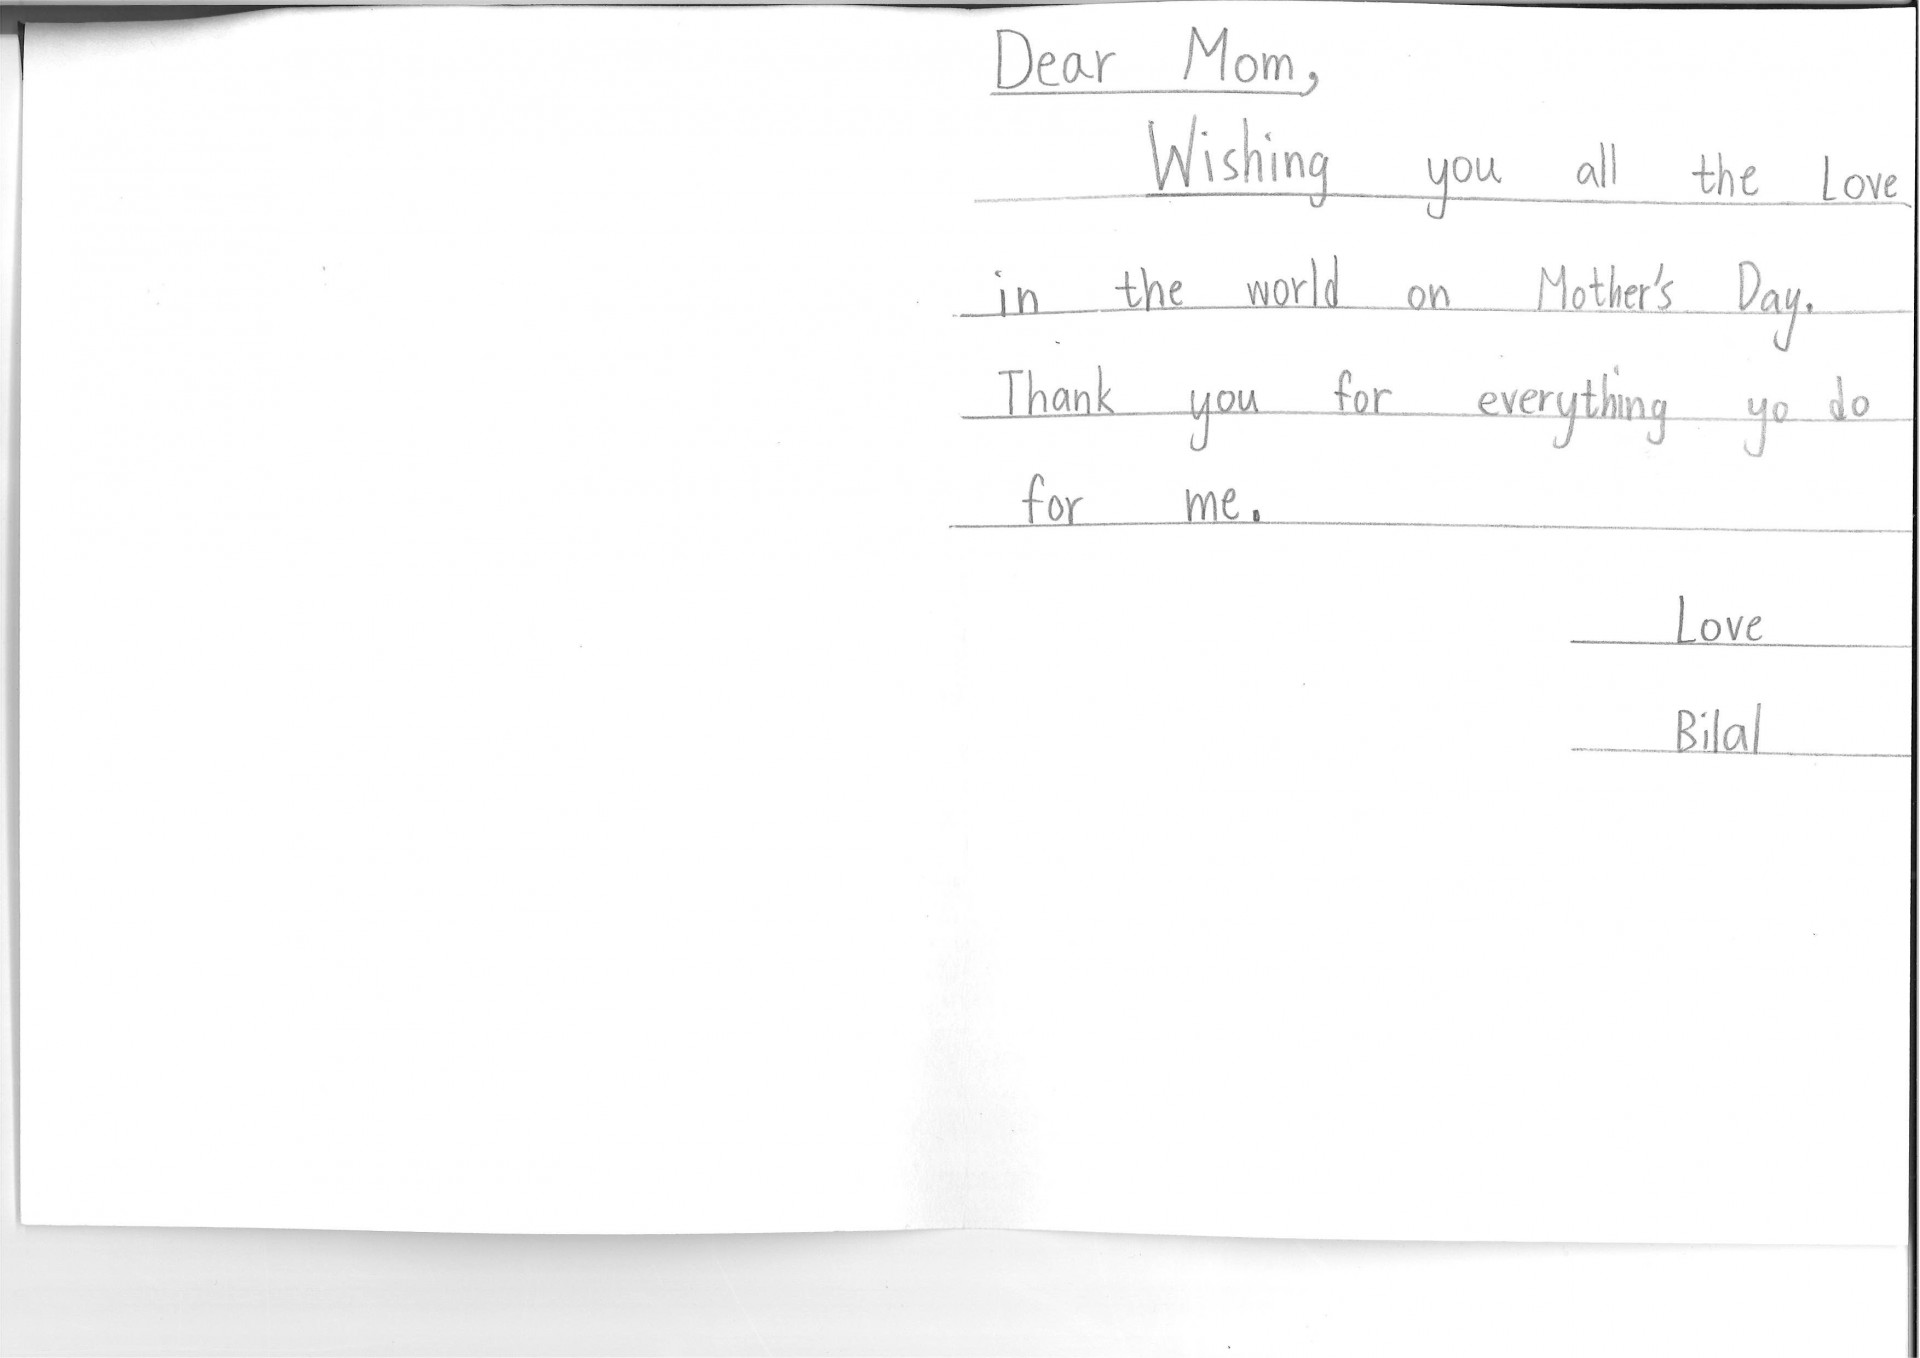 Dear Mom,
Wishing you all the Love
in the world on Mother's Day.
Thank you for everything yo do
for me.
Love
Bilal